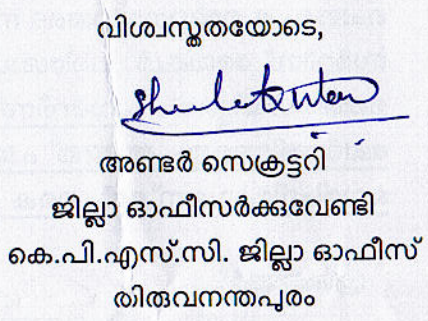 വിശ്വസ്തതയോടെ,
അണ്ടർ സെക്രട്ടറി
ജില്ലാ ഓഫീസർക്കുവേണ്ടി
കെ.പി.എസ്.സി. ജില്ലാ ഓഫീസ്
തിരുവനന്തപുരം